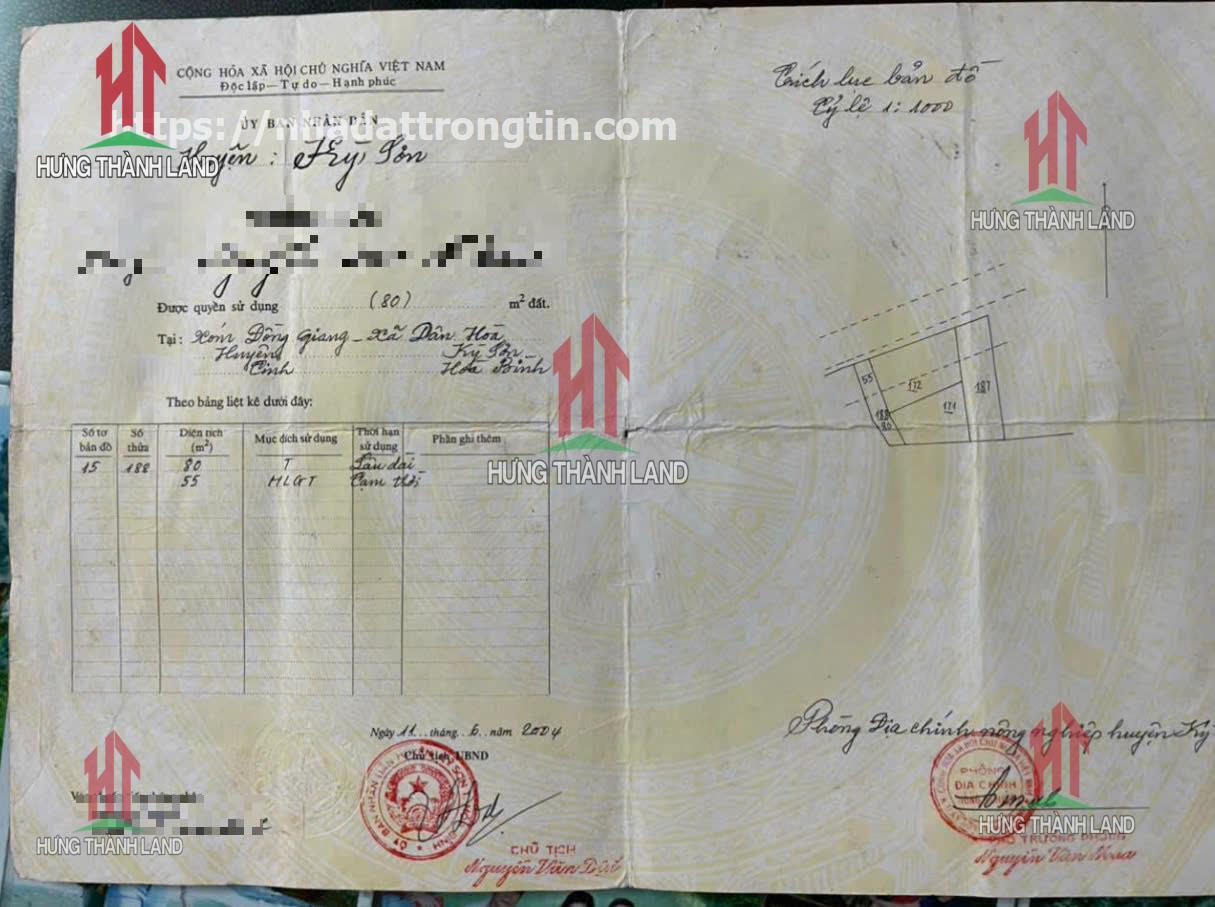 CỘNG HÒA XÃ HỘI CHỦ NGHĨA VIỆT NAM
Độc lập — Tự do — Hạnh phúc
ỦY BAN NHÂN DÂN
https://nhadattrongtin.com
Huyện : Kỳ Sơn
HƯNG THÀNH LAND
Được quyền sử dụng (80) m² đất.
Tại: Xóm Đồng Giang - Xã Dân Hoà
Huyện Kỳ Sơn
Tỉnh Hoà Bình
Theo bảng liệt kê dưới đây:
Số tờ bản đồ Số thửa Diện tích (m²) Mục đích sử dụng Thời hạn sử dụng Phần ghi thêm
15 188 80 T Lâu dài
55 HLGT Tạm thời
HƯNG THÀNH LAND
Ngày 11 tháng 6 năm 2004
Chủ tịch UBND
CHỦ TỊCH
Nguyễn Văn
HƯNG THÀNH LAND
Trích lục bản đồ
Tỷ lệ 1:1000
HƯNG THÀNH LAND
55
172
171
187
188
80
Phòng Địa chính nông nghiệp huyện Kỳ
PHÒNG
ĐỊA CHÍNH
HƯNG THÀNH LAND
PHÓ TRƯỞNG PHÒNG
Nguyễn Văn